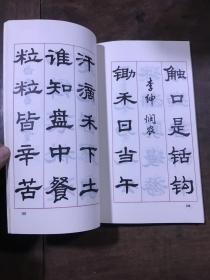 触口是铦钩
李绅 悯农
锄禾日当午
汗滴禾下土
谁知盘中餐
粒粒皆辛苦